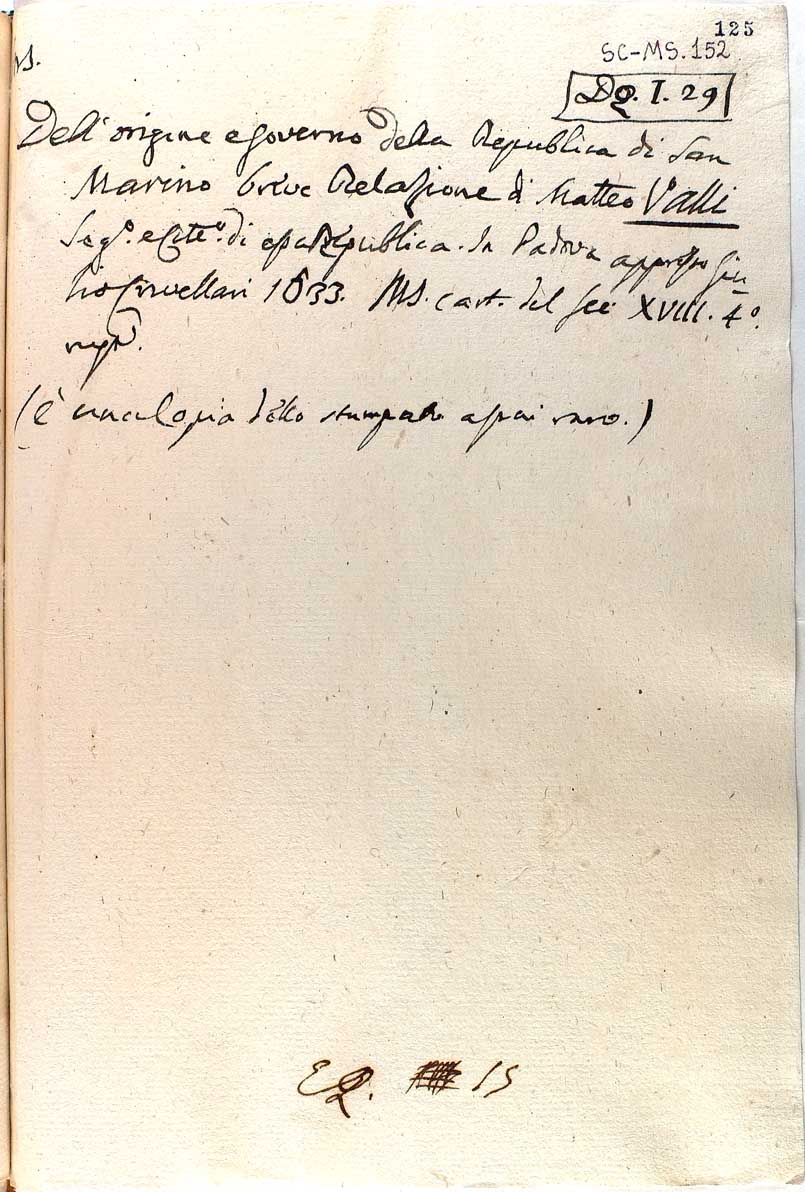 125
SC-MS.152
DQ. I. 29
Dell'origine e governo della Republica di San
Marino breve Relazione di Matteo Valli
Seg.o e Citt.o di essa Republica. In Padova appresso Giu
lio Crivellari 1633. MS. cart. del sec XVIII. 4o.
(è una Copia dello stampato assai raro.)
EQ. 15